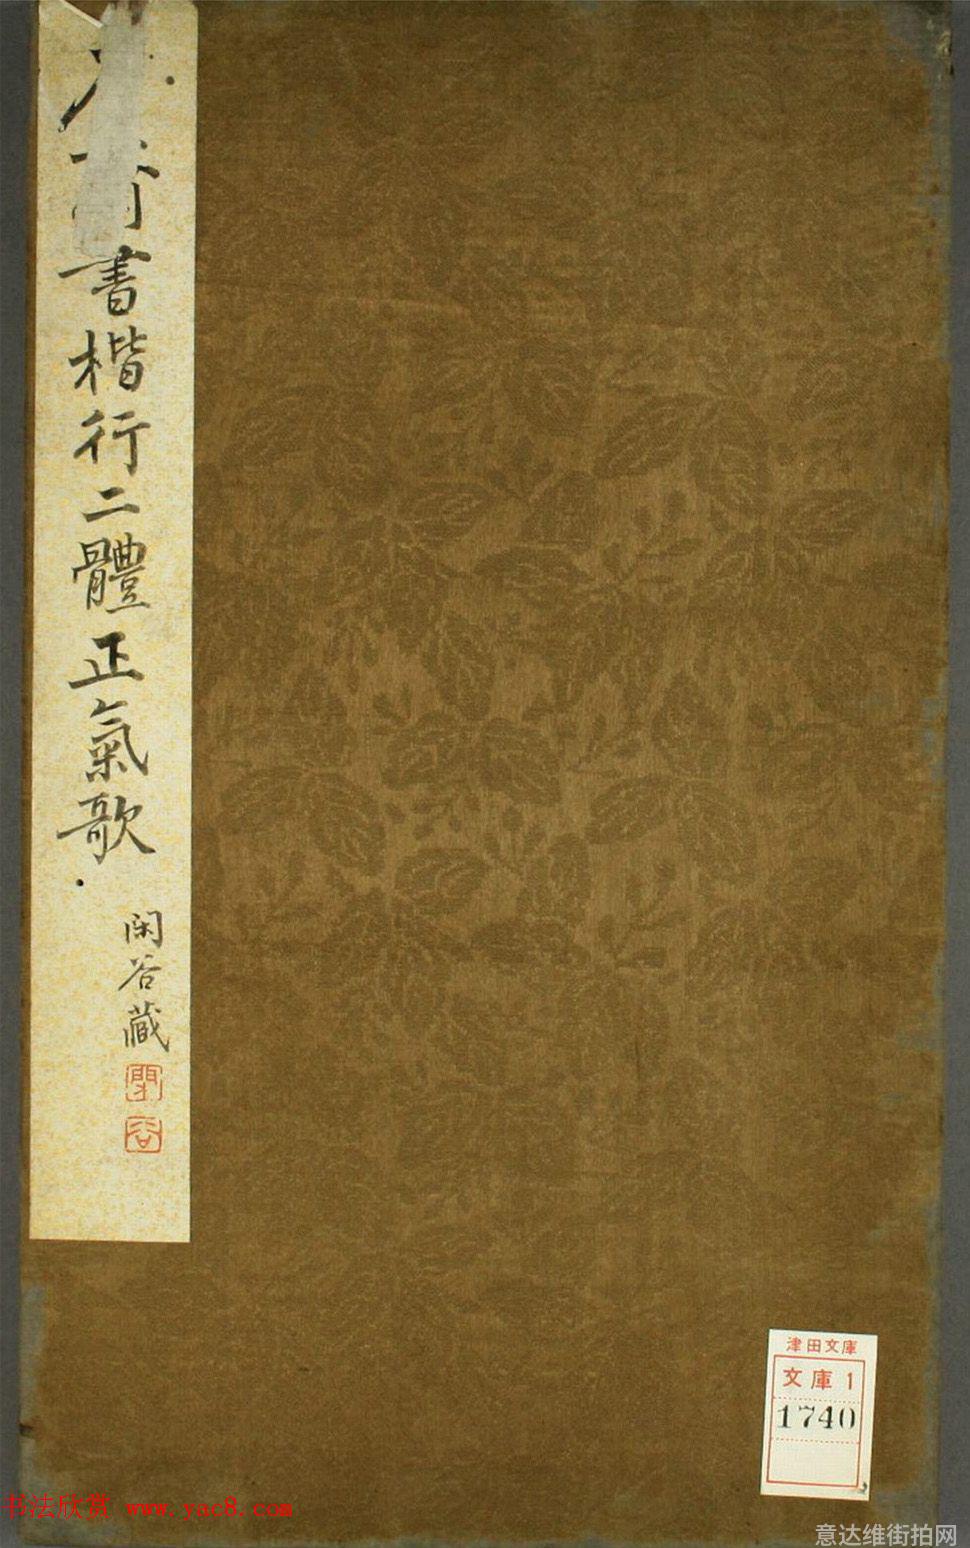 書楷行二體正氣歌
閑谷藏
閑
谷
津田文庫
文庫1
1740
书法欣赏 www.yac8.com
意达维街拍网